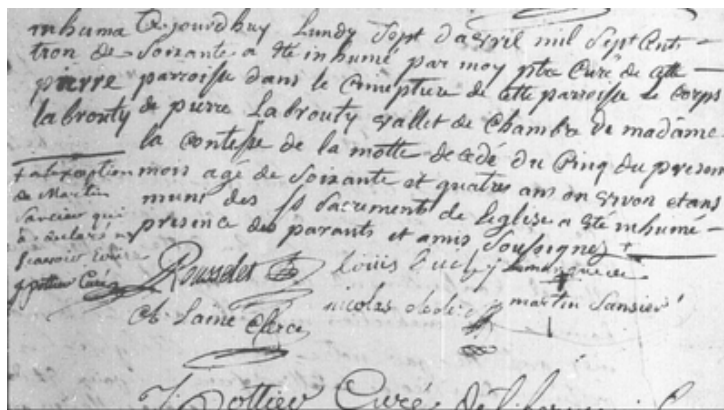 inhuma
tion de
pierre
labrouty
aujourdhuy Lundy Sept d'avril mil Sept Cent
Soixante a été inhumé par moy ptre Curé de cette
parroisse dans le cimetiere de cette parroisse le corps
de pierre Labrouty vallet de chambre de madame
la contesse de la motte decedé du Cinq du presen
mois agé de Soixante et quatres ans on environ etans
muni des Sts Sacrements de l'eglise a été inhumé
presence des parants et amis Soussignez +
+ a l'exception
de Martin
Sansier qui
a declaré ne
scavoir ecrire
f pottier Curé
Rousselet louis
nicolas martin Sansier
Ch. Lainé Clerc
f pottier Curé de